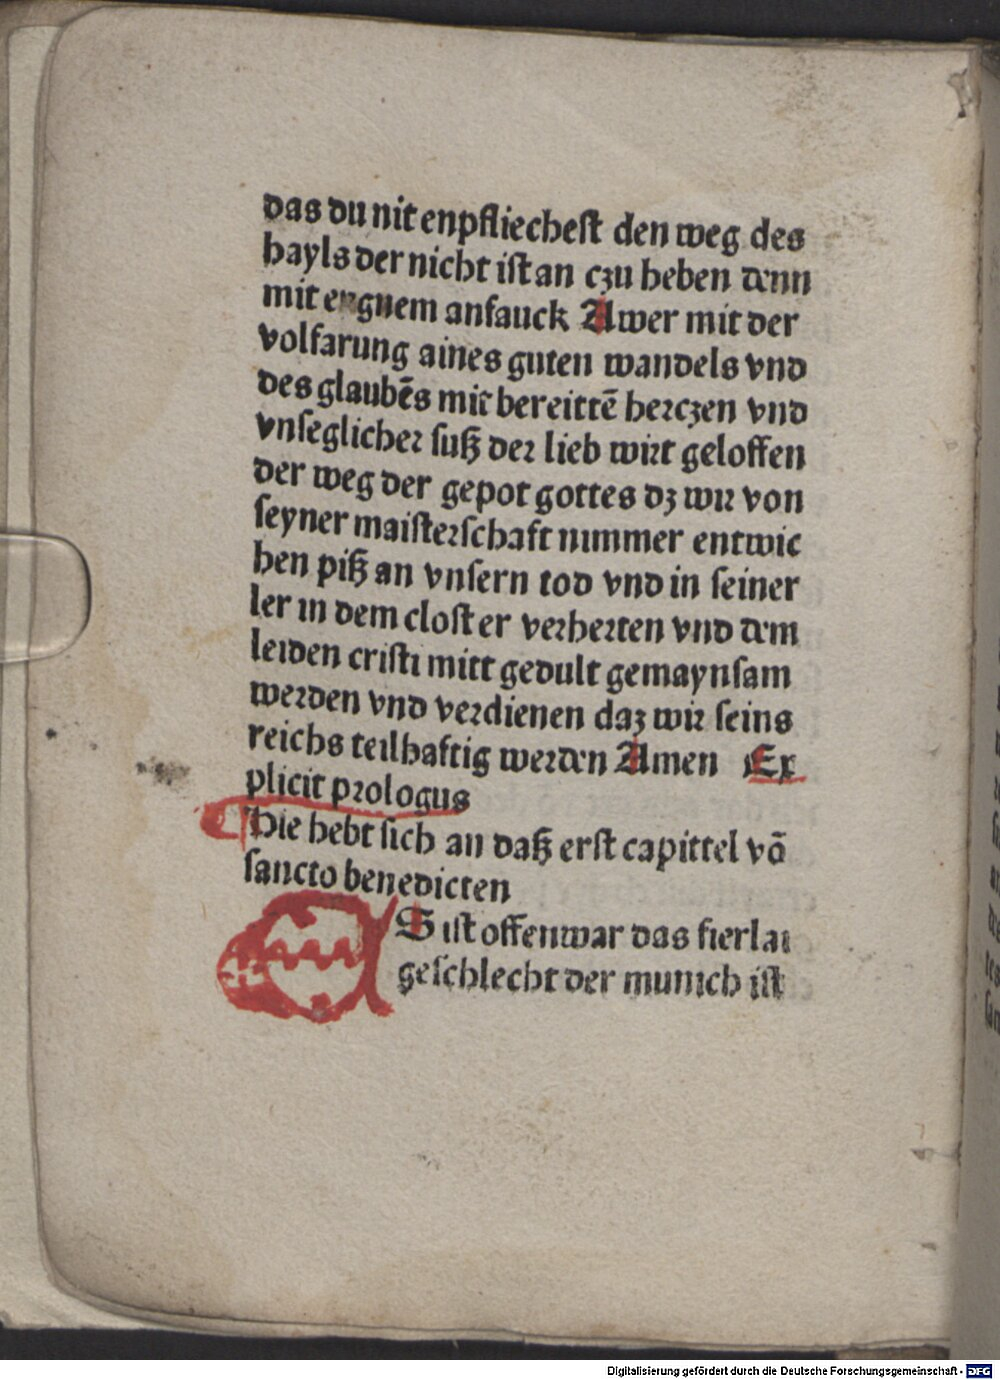 das du nit enpfliechest den weg des
hayls der nicht ist an czu heben denn
mit engnem anfauck Awer mit der
volfarung aines guten wandels vnd
des glaubēs mit bereittē herczen vnd
vnseglicher suß der lieb wirt geloffen
der weg der gepot gottes dz wir von
seyner maisterschaft nimmer entwic
hen piß an vnsern tod vnd in seiner
ler in dem closter verherten vnd dem
leiden cristi mitt gedult gemaynsam
werden vnd verdienen daz wir seins
reichs teilhaftig werden Amen Ex
plicit prologus
Hie hebt sich an daß erst capittel vō
sancto benedicten
S ist offenwar das fierlai
geschlecht der munich ist
Digitalisierung gefördert durch die Deutsche Forschungsgemeinschaft - DFG